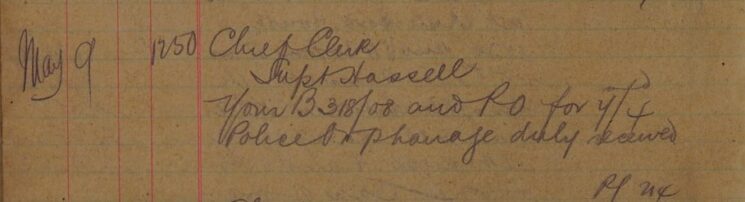 May 9 1250 Chief Clerk
Supt Hassell
Your B 318/08 and P.O for 4/4
Police Orphanage duly received